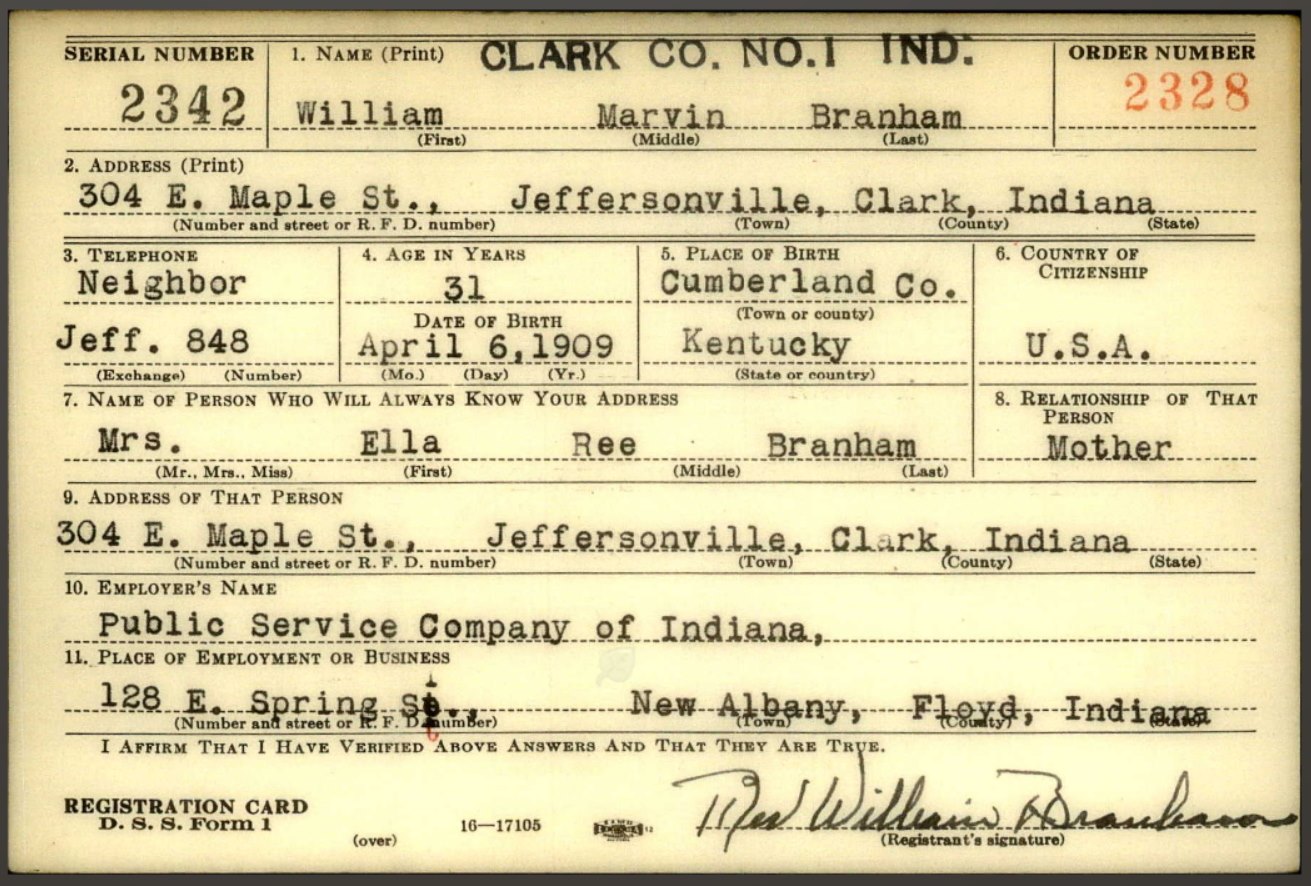 SERIAL NUMBER 1. NAME (Print) CLARK CO. NO.1 IND. ORDER NUMBER
2342 William Marvin Branham 2328
(First) (Middle) (Last)
2. ADDRESS (Print)
304 E. Maple St., Jeffersonville, Clark, Indiana
(Number and street or R. F. D. number) (Town) (County) (State)
3. TELEPHONE 4. AGE IN YEARS 5. PLACE OF BIRTH 6. COUNTRY OF CITIZENSHIP
Neighbor 31 Cumberland Co.
DATE OF BIRTH (Town or county)
Jeff. 848 April 6,1909 Kentucky U.S.A.
(Exchange) (Number) (Mo.) (Day) (Yr.) (State or country)
7. NAME OF PERSON WHO WILL ALWAYS KNOW YOUR ADDRESS 8. RELATIONSHIP OF THAT PERSON
Mrs. Ella Ree Branham Mother
(Mr., Mrs., Miss) (First) (Middle) (Last)
9. ADDRESS OF THAT PERSON
304 E. Maple St., Jeffersonville, Clark, Indiana
(Number and street or R. F. D. number) (Town) (County) (State)
10. EMPLOYER'S NAME
Public Service Company of Indiana,
11. PLACE OF EMPLOYMENT OR BUSINESS
128 E. Spring St., New Albany, Floyd, Indiana
(Number and street or R. F. D. number) (Town) (County) (State)
I AFFIRM THAT I HAVE VERIFIED ABOVE ANSWERS AND THAT THEY ARE TRUE.
REGISTRATION CARD
D. S. S. Form 1 16—17105 Rev William Branham
(over) (Registrant's signature)